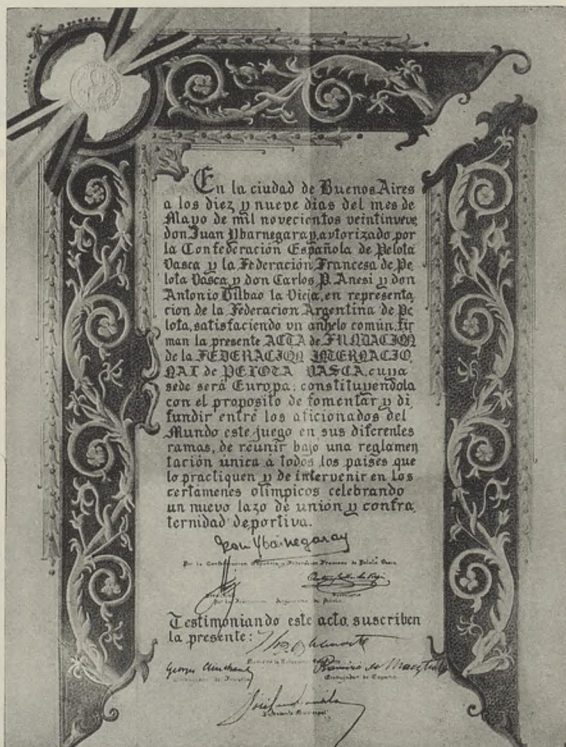 En la ciudad de Buenos Aires
a los diez y nueve dias del mes de
Mayo de mil novecientos veintinueve,
don Juan Ybarnegaray, autorizado por
la Confederación Española de Pelota
Vasca y la Federación Francesa de Pe
lota Vasca y don Carlos P. Anesi y don
Antonio Bilbao la Vieja, en representa
cion de la Federacion Argentina de Pe
lota, satisfaciendo un anhelo común, fir
man la presente ACTA de FUNDACION
de la FEDERACION INTERNACIO
NAL de PELOTA VASCA, cuya
sede será Europa; constituyendola
con el proposito de fomentar y di
fundir entre los aficionados del
Mundo este juego en sus diferentes
ramas, de reunir bajo una reglamen
tación unica a todos los paises que
lo practiquen y de intervenir en los
certamenes olimpicos celebrando
un nuevo lazo de unión y confra
ternidad deportiva.
Jean Ybarnegaray
Por la Confederacion Española y Federacion Francesa de Pelota Vasca
Por la Federacion Argentina de Pelota
Testimoniando este acto, suscriben
la presente:
Ramiro de Maeztu
Embajador de España